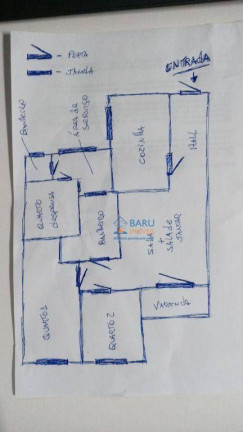 - PORTA
- JANELA
ENTRADA
BANHEIRO
ÁREA DE
SERVIÇO
COZINHA
HALL
QUARTO
DESPENSA
BANHEIRO
BARU
SALA
+
SALA DE
JANTAR
VARANDA
QUARTO 1
QUARTO 2